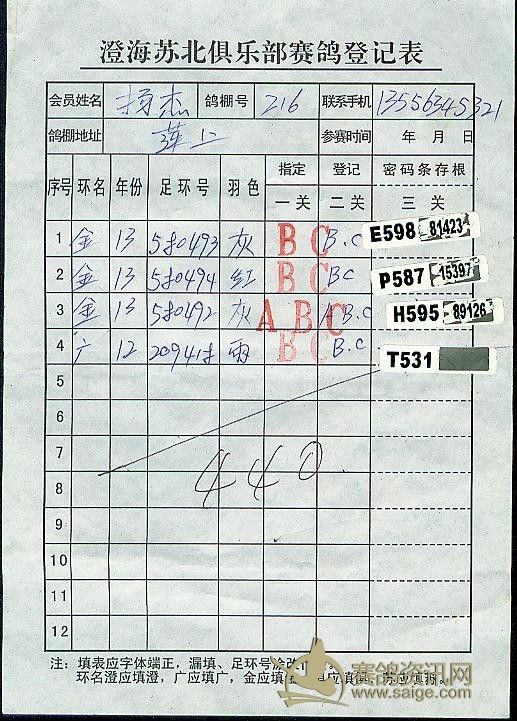 澄海苏北俱乐部赛鸽登记表
会员姓名 杨杰 鸽棚号 216 联系手机 13556345321
鸽棚地址 莲上 参赛时间 年 月 日
序号 环名 年份 足环号 羽色 指定 一关 登记 二关 密码条存根 三关
1 金 13 580493 灰 B C B.C E598 81423
2 金 13 580494 红 B C BC P587 15397
3 金 13 580492 灰 A B C A B.C H595 89126
4 广 12 20941 雨 B C B.C T531
5
6
7
440
8
9
10
11
12
注：填表应字体端正，漏填、足环号涂改
环名澄应填澄，广应填广，金应填
赛鸽资讯网
www.saige.com